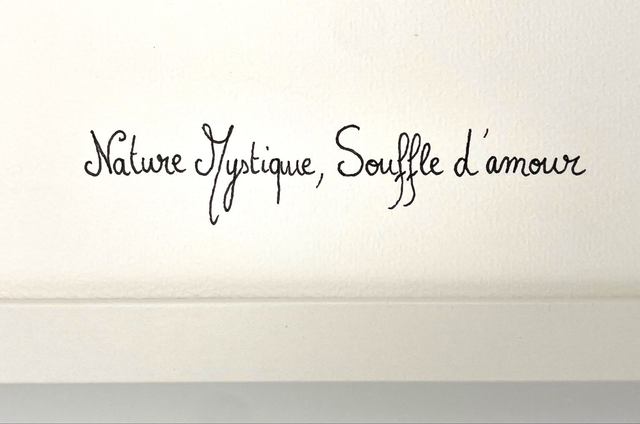 Nature Mystique, Souffle d'amour